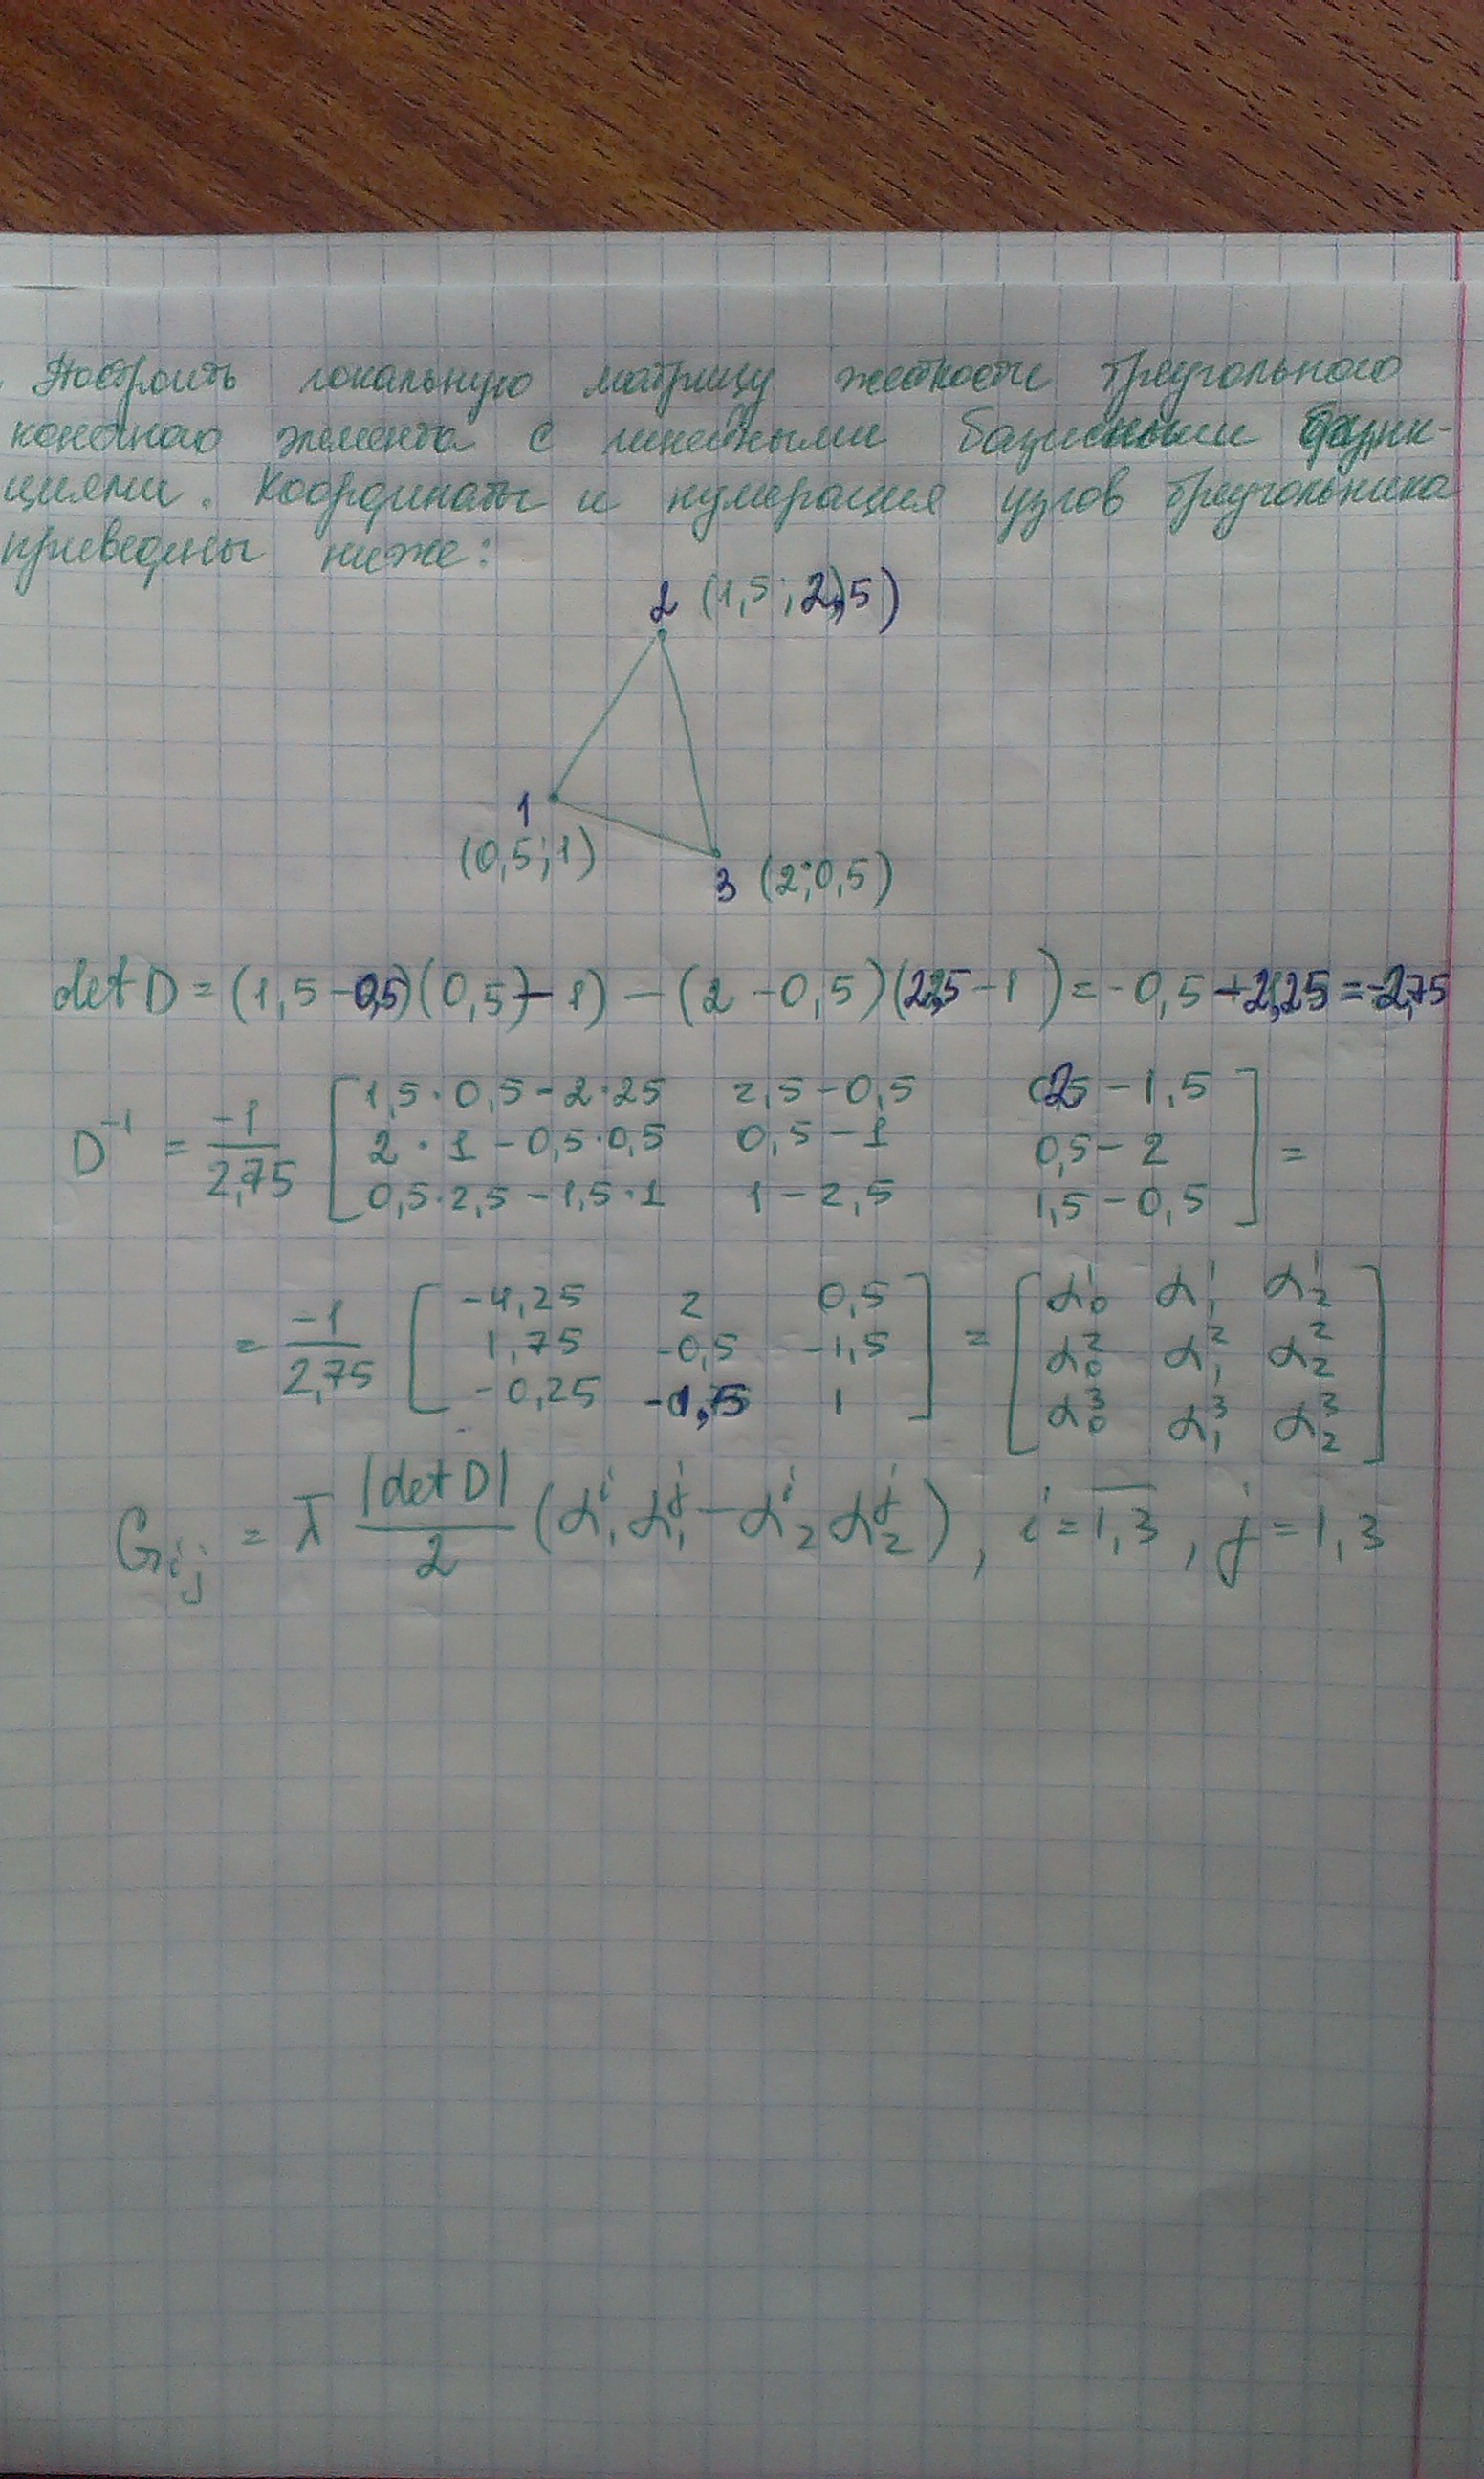 Построить локальную матрицу жесткости треугольного
конечного элемента с линейными базисными функ-
циями. Координаты и нумерация узлов треугольника
приведены ниже:
2 (1,5; 2,5)
1
(0,5; 1)
3 (2; 0,5)
det D = (1,5 - 0,5)(0,5 - 1) - (2 - 0,5)(2,5 - 1) = -0,5 + 2,25 = -2,75
D⁻¹ = -1/2,75 [ 1,5·0,5 - 2·25 2,5 - 0,5 25 - 1,5
2·1 - 0,5·0,5 0,5 - 1 0,5 - 2
0,5·2,5 - 1,5·1 1 - 2,5 1,5 - 0,5 ] =
= -1/2,75 [ -4,25 2 0,5
1,75 -0,5 -1,5
-0,25 -1,75 1 ] = [ α₀¹ α₁¹ α₂¹
α₀² α₁² α₂²
α₀³ α₁³ α₂³ ]
Gᵢⱼ = λ̄ |det D|/2 (α₁ⁱ α₁ʲ - α₂ⁱ α₂ʲ), i = 1,3, j = 1,3